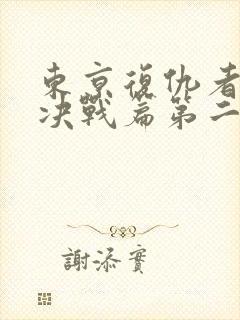 東京復仇者
決戰篇第二
謝添實